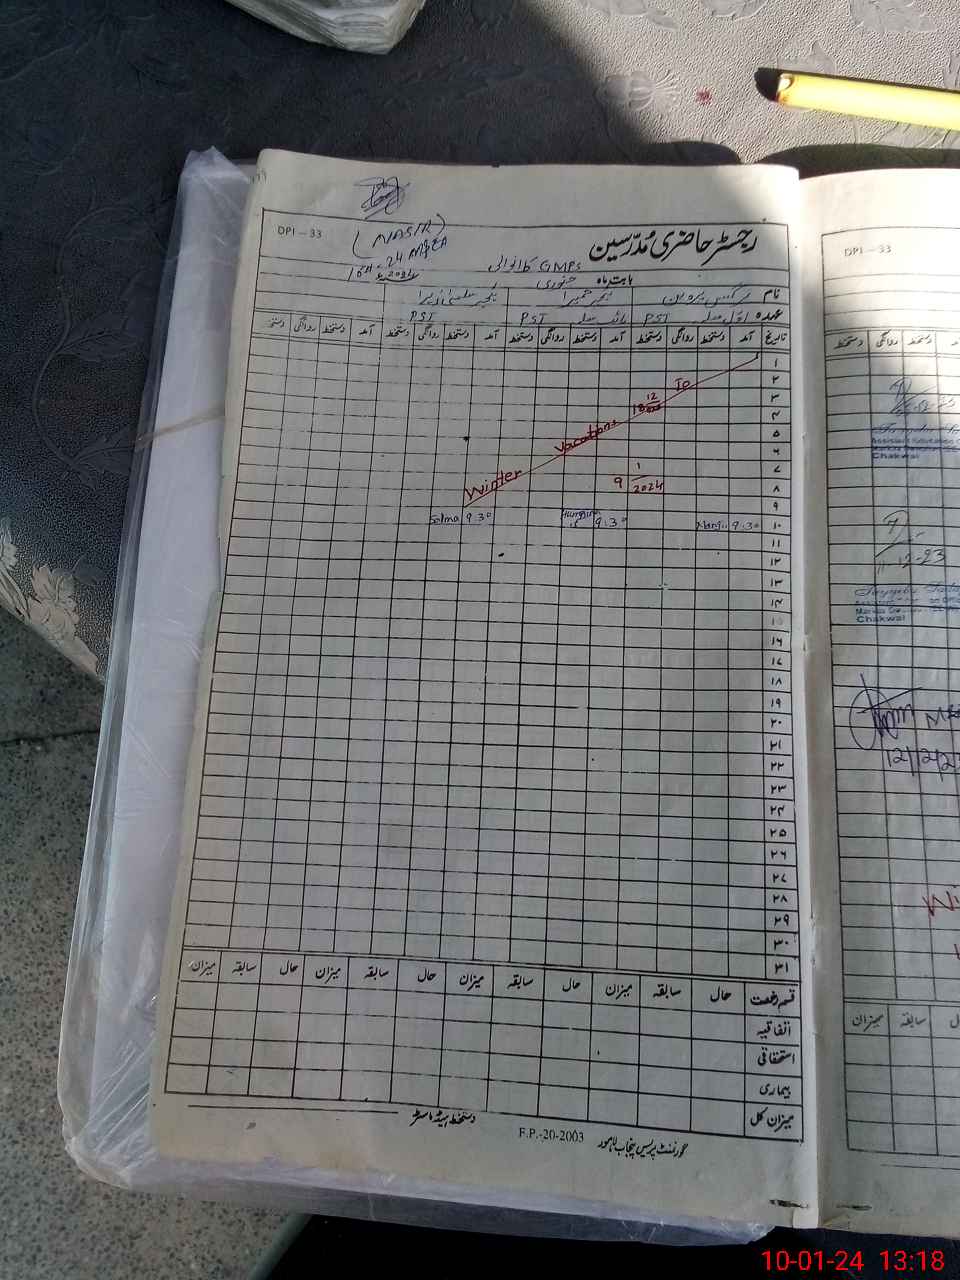 DPI - 33
رجسٹر حاضری مُدرّسین
(NASIR)
GMPS کالانوالی
بابت ماہ جنوری
نام نرگس پروین حمیرا
عہدہ PST PST PST
تاریخ آمد دستخط روانگی دستخط آمد دستخط روانگی دستخط آمد دستخط روانگی دستخط آمد دستخط روانگی دستخط
۱
۲ To
۳ 18 12
۴
۵ Vacations
۶
۷ Winter 1
۸ 9 2024
۹
۱۰ 9:30 9:30 Salma 9:30
۱۱
۱۲
۱۳
۱۴
۱۵
۱۶
۱۷
۱۸
۱۹
۲۰
۲۱
۲۲
۲۳
۲۴
۲۵
۲۶
۲۷
۲۸
۲۹
۳۰
۳۱
قسم رخصت حال سابقہ میزان حال سابقہ میزان حال سابقہ میزان حال سابقہ میزان
اتفاقیہ
استحقاقی
بیماری
میزان کل
دستخط ہیڈ ماسٹر
F.P.-20-2003
گورنمنٹ پریس پنجاب لاہور
DPI - 33
دستخط روانگی دستخط
Chakwal
12-23
Chakwal
12/12/23
سابقہ میزان
10-01-24 13:18